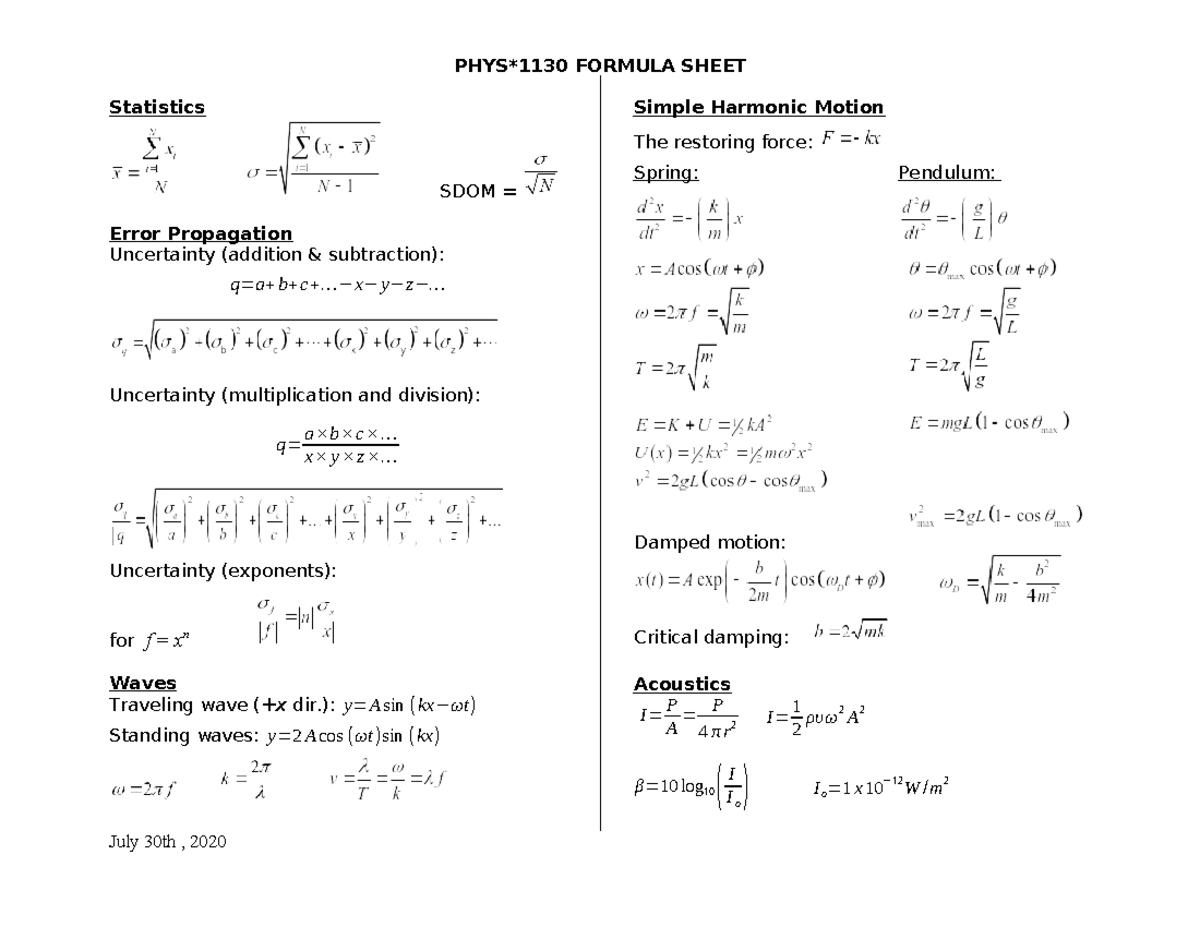 PHYS*1130 FORMULA SHEET
Statistics
x̄ = ∑_{i=1}^{N} x_i / N    σ = √(∑_{i=1}^{N} (x_i - x̄)² / (N - 1))    SDOM = σ/√N
Error Propagation
Uncertainty (addition & subtraction):
q=a+b+c+…−x−y−z−…
σ_q = √((σ_a)² + (σ_b)² + (σ_c)² + ⋯ + (σ_x)² + (σ_y)² + (σ_z)² + ⋯)
Uncertainty (multiplication and division):
q = (a×b×c×…)/(x×y×z×…)
σ_q/|q = √((σ_a/a)² + (σ_b/b)² + (σ_c/c)² + … + (σ_x/x)² + (σ_y/y)² + (σ_z/z)² + …
Uncertainty (exponents):
for f = xⁿ    σ_f/|f| = |n| σ_x/x|
Waves
Traveling wave (+x dir.): y=A sin (kx−ωt)
Standing waves: y=2A cos (ωt) sin (kx)
ω = 2π f    k = 2π/λ    v = λ/T = ω/k = λ f
July 30th , 2020
Simple Harmonic Motion
The restoring force: F = - kx
Spring:    Pendulum:
d²x/dt² = -(k/m) x    d²θ/dt² = -(g/L) θ
x = A cos(ωt + ϕ)    θ = θ_max cos(ωt + ϕ)
ω = 2π f = √(k/m)    ω = 2π f = √(g/L)
T = 2π √(m/k)    T = 2π √(L/g)
E = K + U = ½ kA²    E = mgL(1 - cos θ_max)
U(x) = ½ kx² = ½ mω²x²
v² = 2gL(cos θ - cos θ_max)
v²_max = 2gL(1 - cos θ_max)
Damped motion:
x(t) = A exp(- b/2m t) cos(ω_D t + ϕ)    ω_D = √(k/m - b²/4m²)
Critical damping: b = 2√mk
Acoustics
I = P/A = P/4πr²    I = 1/2 ρυω²A²
β=10 log₁₀(I/I_o)    I_o=1x10⁻¹²W/m²